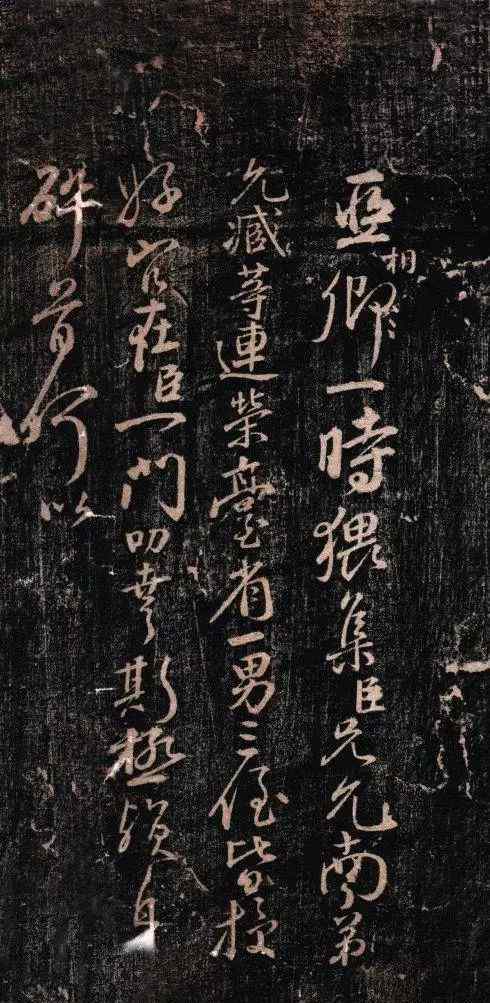 亞相卿一時猥集臣兄允南弟
允臧等連榮臺省一男三侄皆授
好官在臣一門叨幸斯極殞身
碎首何以